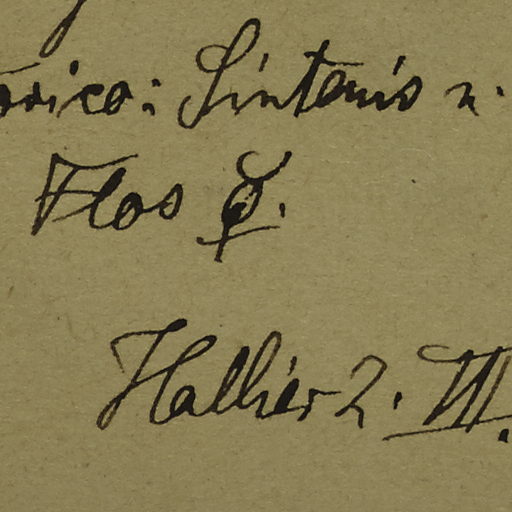 orico: Sintenis n.
Flos ☿.
Hallier 2. III.